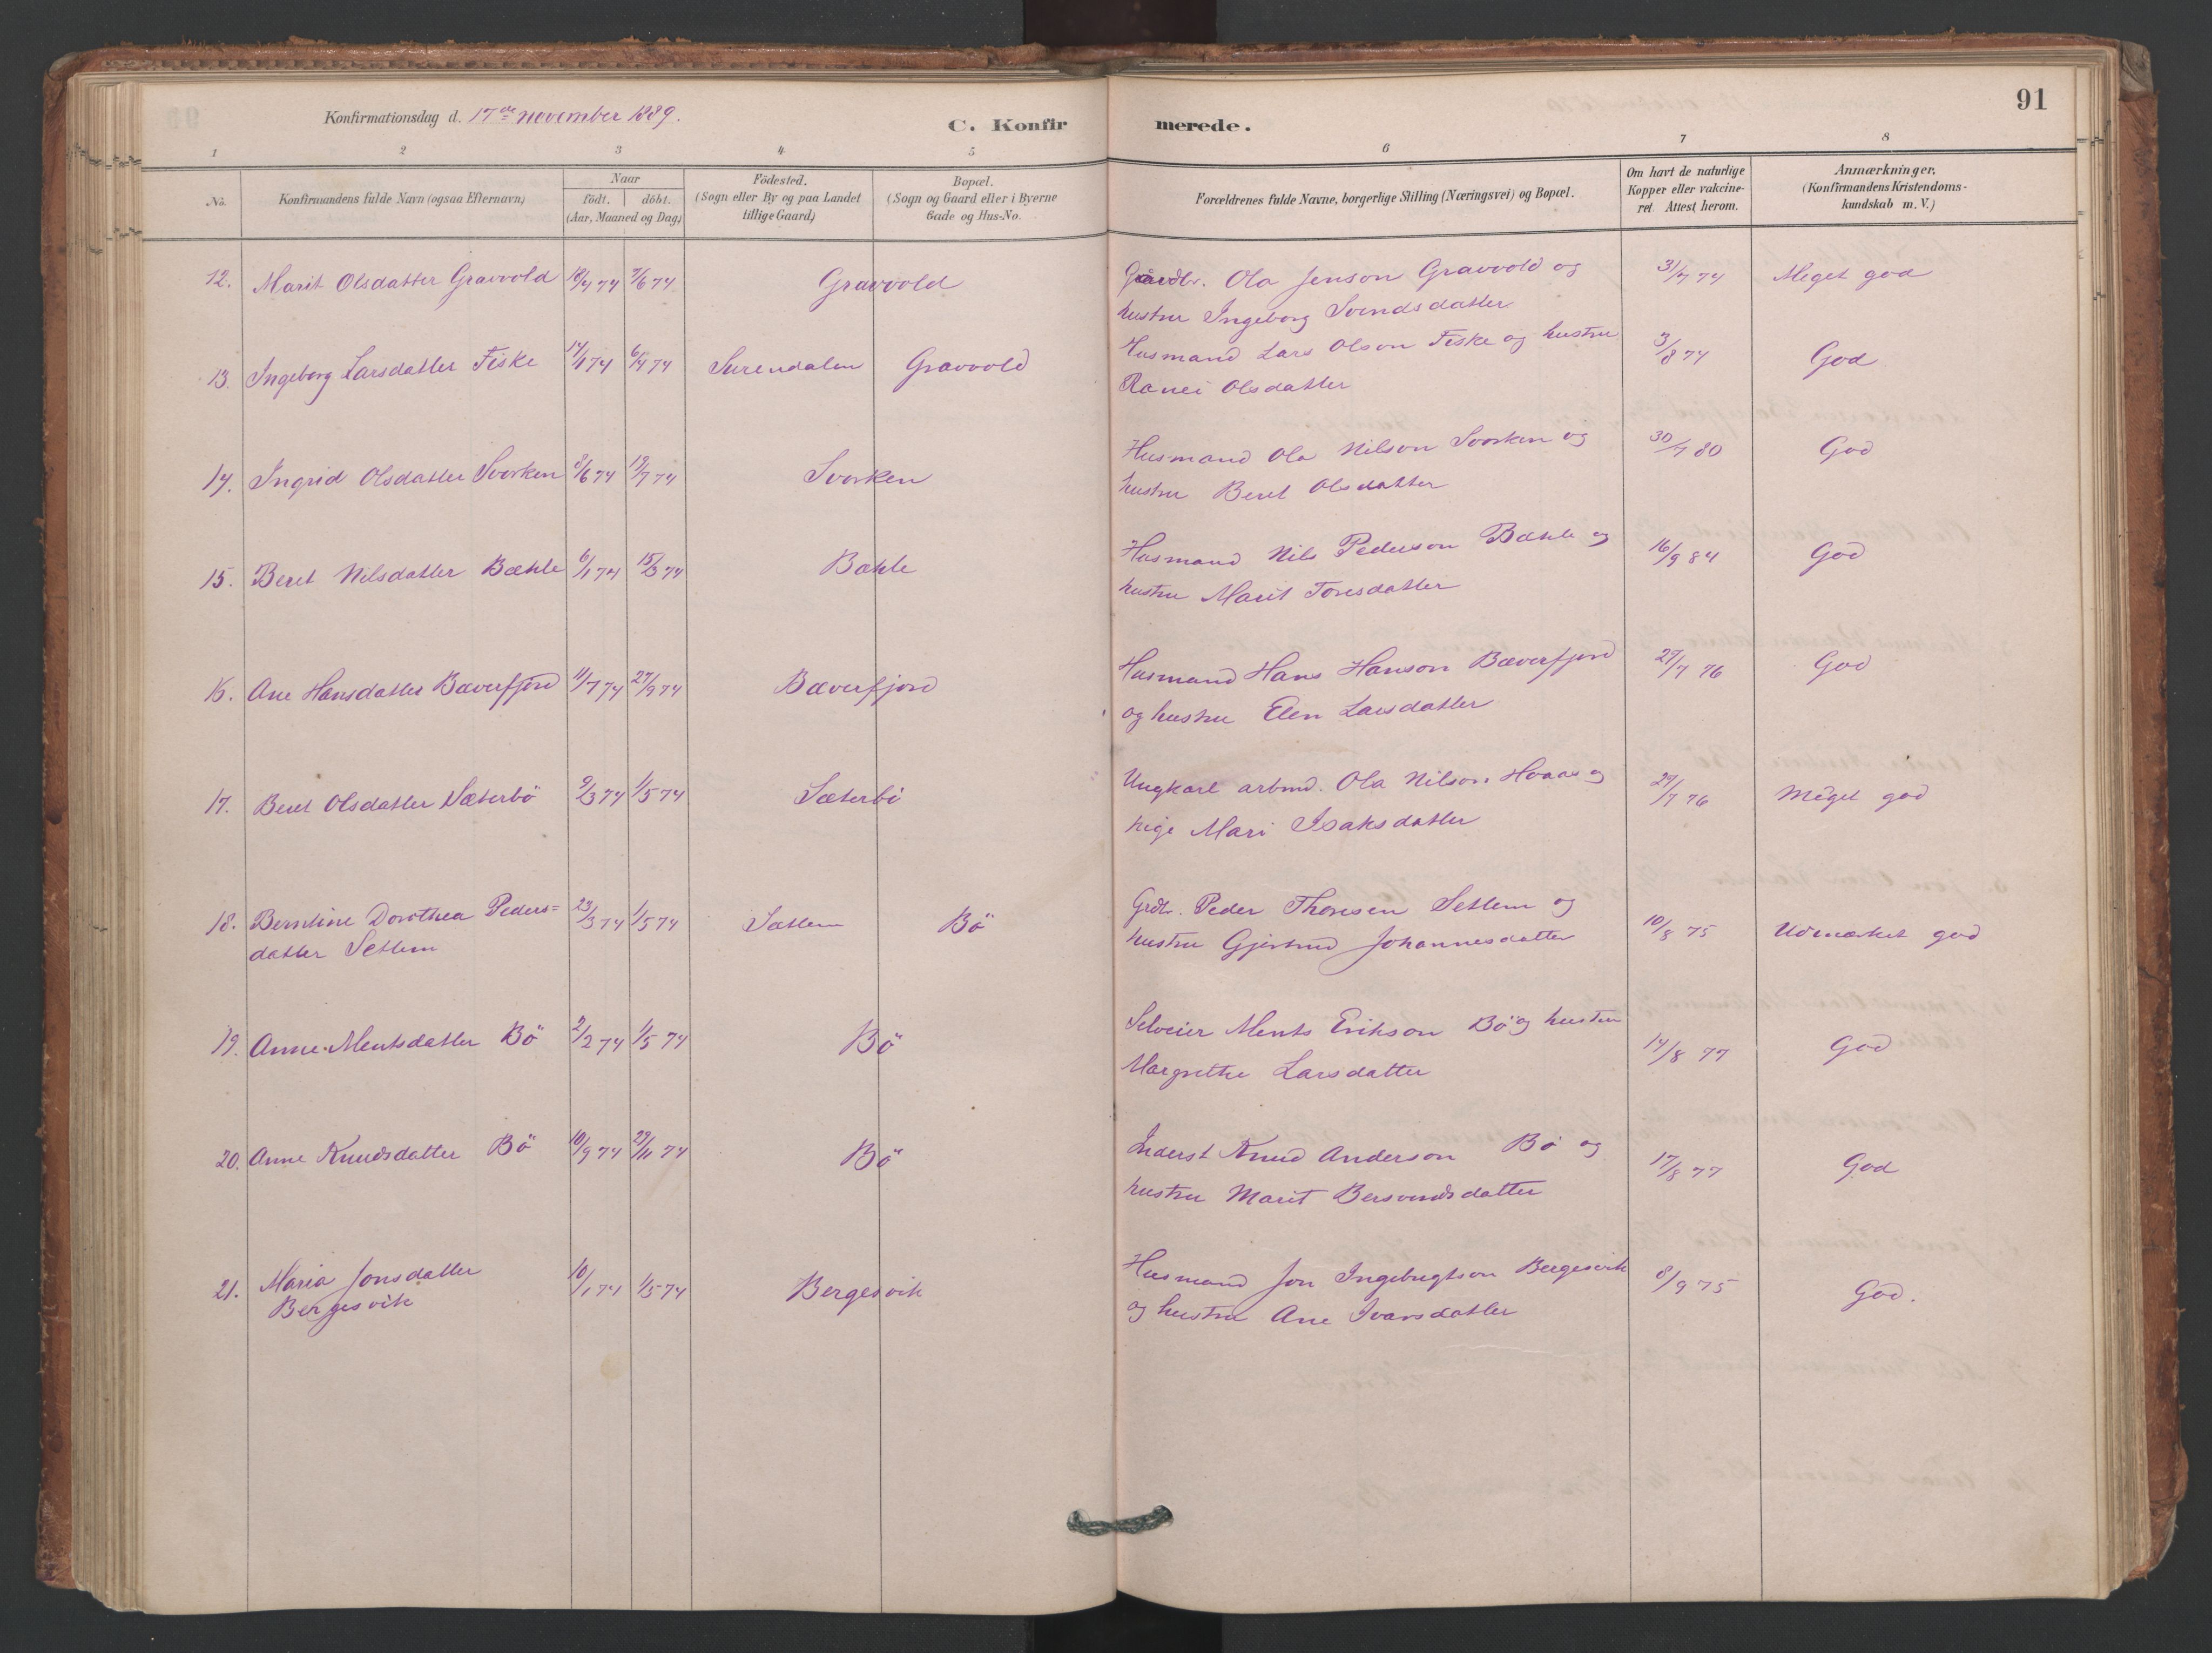 Konfirmationsdag d. 17de november 1889.
C. Konfirmerede.
91
1 2 3 4 5 6 7 8
No.
Konfirmandens fulde Navn (ogsaa Efternavn)
Naar
födt. döbt.
(Aar, Maaned og Dag)
Födested.
(Sogn eller By og paa Landet
tillige Gaard)
Bopæl.
(Sogn og Gaard eller i Byerne
Gade og Hus-No.
Forældrenes fulde Navne, borgerlige Stilling (Næringsvei) og Bopæl.
Om havt de naturlige
Kopper eller vakcine-
ret. Attest herom.
Anmærkninger.
(Konfirmandens Kristendoms-
kundskab m. V.)
12. Marit Olsdatter Gravvold 18/4 74 7/6 74 Gravvold Gaardbr. Ola Jenson Gravvold og 31/7 74 Meget god
hustru Ingeborg Svendsdatter
13. Ingeborg Larsdatter Fiske 14/1 74 6/4 74 Surendalen Gravvold Husmand Lars Olson Fiske og hustru 3/8 74 God
Ranei Olsdatter
14. Ingrid Olsdatter Svorken 8/6 74 19/7 74 Svorken Husmand Ola Nilson Svorken og 30/7 80 God
hustru Beret Olsdatter
15. Beret Nilsdatter Bæhle 6/1 74 15/3 74 Bæhle Husmand Nils Pederson Bæhle og 16/9 84 God
hustru Marit Toresdatter
16. Ane Hansdatter Bæverfjord 11/7 74 27/9 74 Bæverfjord Husmand Hans Hanson Bæverfjord 27/7 76 God
og hustru Elen Larsdatter
17. Beret Olsdatter Sæterbö 9/3 74 1/5 74 Sæterbö Ungkarl arbmd. Ola Nilson Hvaas og 27/7 76 Meget god
pige Mari Isaksdatter
18. Berntine Dorothea Peders= 23/3 74 1/5 74 Sættem Bö Grdbr. Peder Thoresen Settem og 10/8 75 Udmærket god
datter Settem hustru Gjertrud Johannesdatter
19. Anne Mentsdatter Bö 2/2 74 1/5 74 Bö Selveier Ments Erikson Bö og hustru 14/8 77 God
Margrethe Larsdatter
20. Anne Knudsdatter Bö 10/9 74 29/11 74 Bö Inderst Knud Anderson Bö og 17/8 77 God
hustru Marit Bersvendsdatter
21. Maria Jonsdatter 10/1 74 1/5 74 Bergesvik Husmand Jon Ingebrigtson Bergesvik 8/9 75 God.
Bergesvik og hustru Ane Ivarsdatter